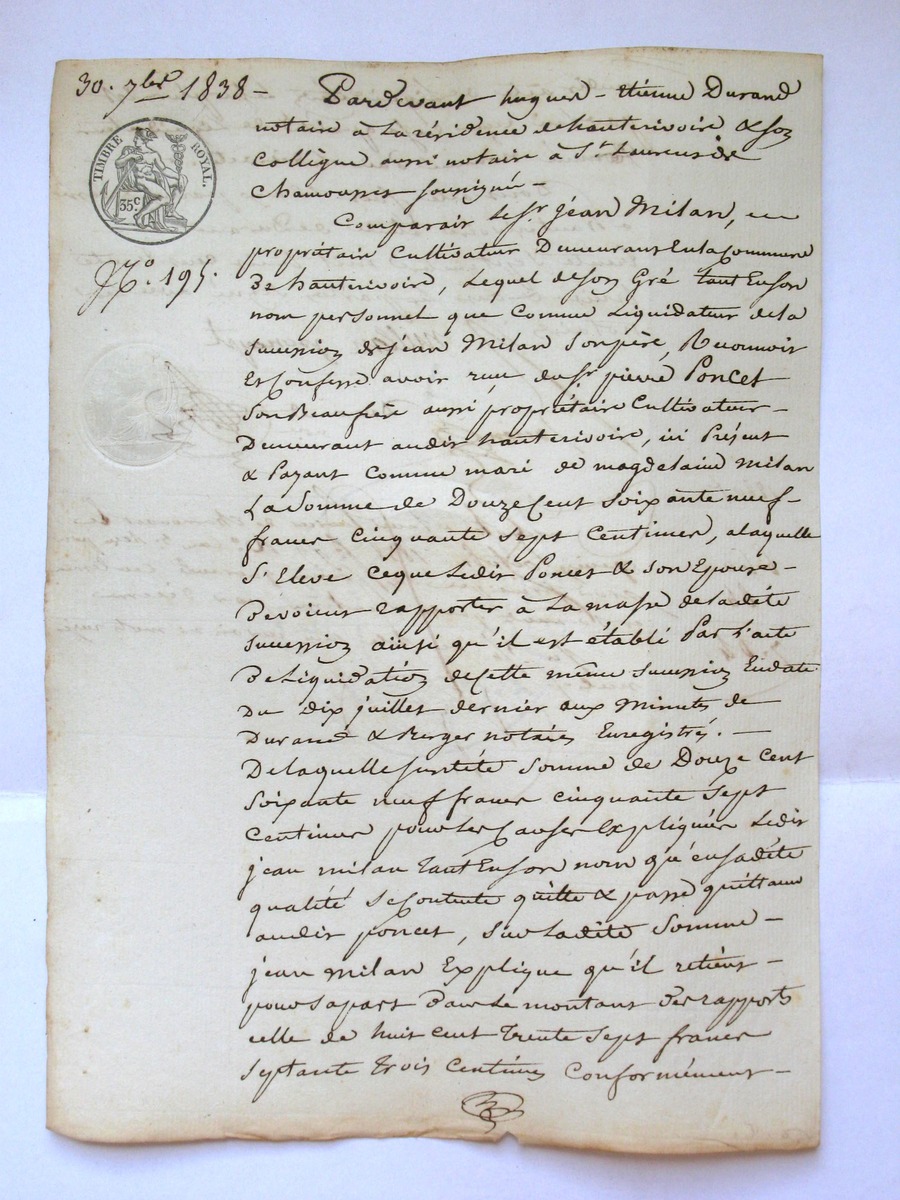 30. 7bre 1838 –
TIMBRE ROYAL.
35c
No. 195.
Pardevant hugues – étienne Durand
notaire à la résidence de hauterivoire & son
Collègue aussi notaire à St. Laurent de
Chamousset soussignés –
Comparait le sr. jean Milan,
propriétaire Cultivateur Demeurant En la Commune
De hauterivoire, Lequel de son Gré tant En son
nom personnel que Comme Liquidateur de la
succession de jean Milan son père, Reconnoit
Et Confesse avoir reçu du sr. pierre Poncet
son Beaufrère aussi propriétaire Cultivateur –
Demeurant audit hauterivoire, ici Présent
& Payant Comme mari de magdelaine Milan
La Somme de Douze Cent soixante neuf –
francs Cinquante sept Centimes, a laquelle
s'Eleve ce que Ledit Poncet & son Epouse –
Devoient rapporter à La masse de ladite
succession ainsi qu'il est établi Par L'acte
De Liquidation de Cette même succession En date
Du Dix juillet dernier aux Minutes de
Durand & Berger notaires Enregistrés. –
De laquelle susdite somme de Douze cent
soixante neuf francs cinquante sept
centimes pour les Causes Expliquées Ledit
jean milan tant En son nom qu'en sadite
qualité se Contente quitte & passe quittance
audit poncet, sur Ladite Somme –
jean Milan Explique qu'il retient –
pour sa part Dans Le montant des rapports
celle de huit cent Trente sept francs
septante Trois Centimes Conformément –